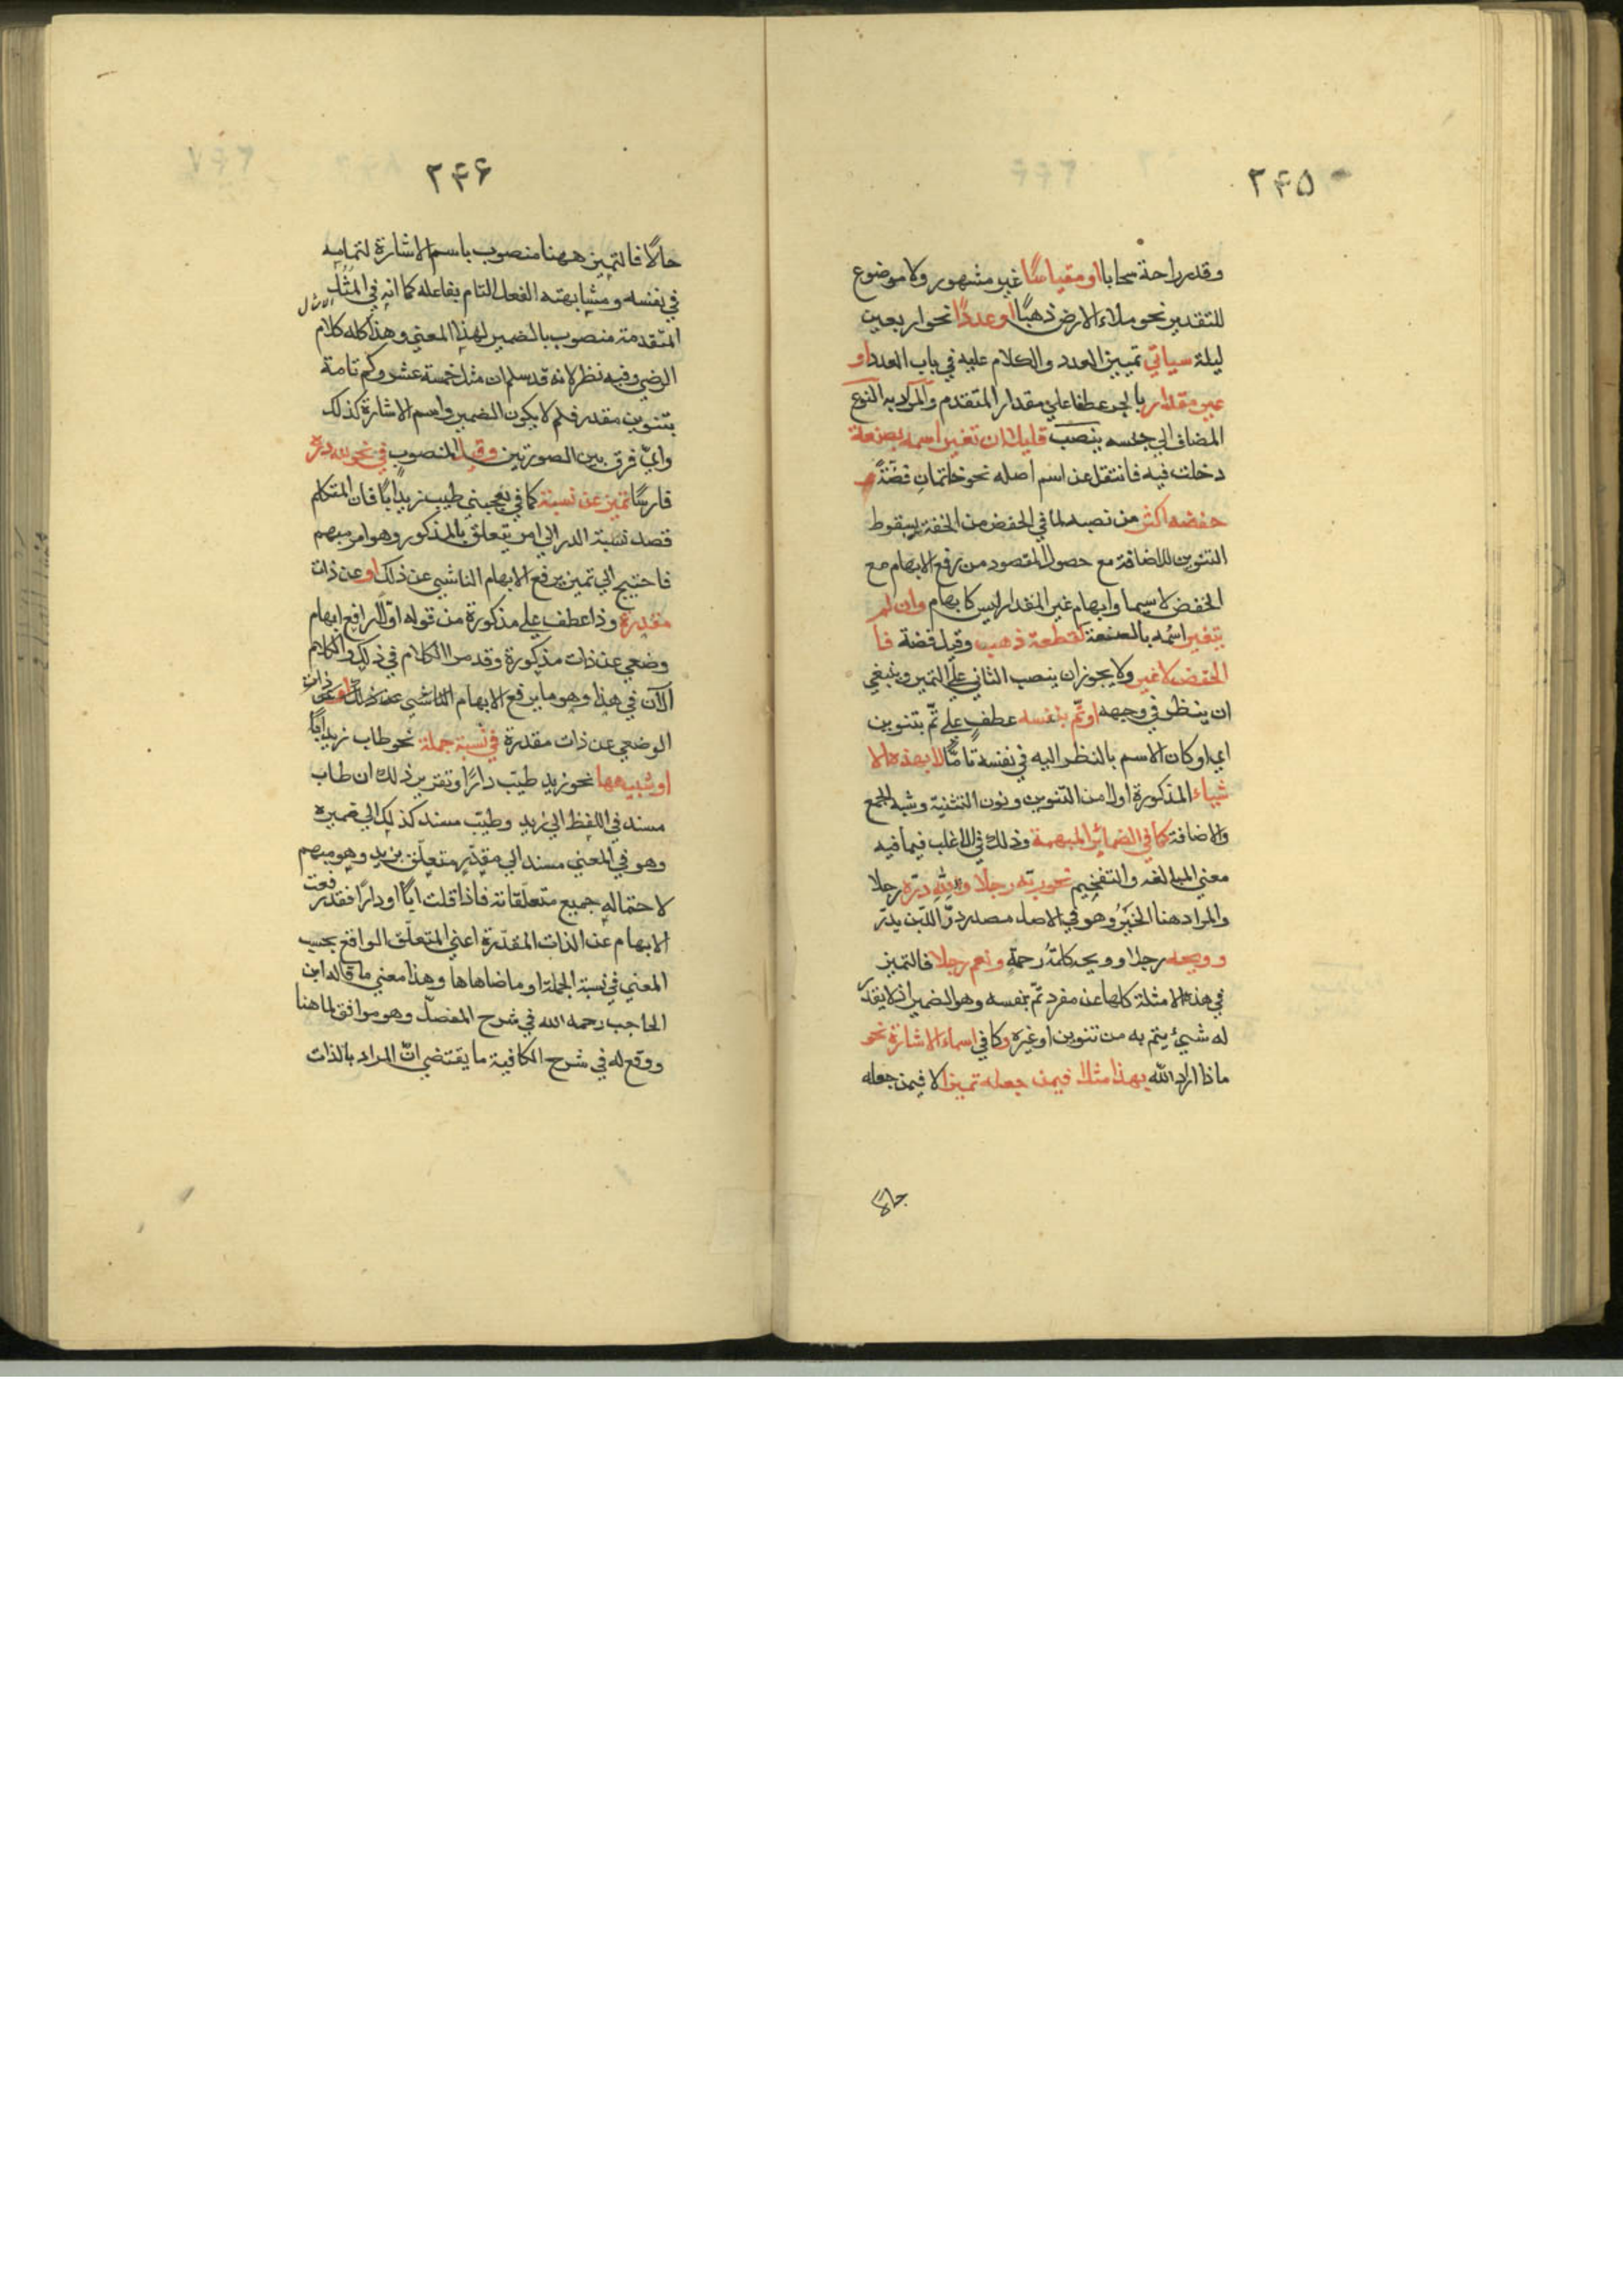 ۲۴۵
وقدر راحة سحابا او مقياسا غير مشهور ولا موضوع
للتقدير نحو ملاء الارض ذهبًا او عددًا نحو اربعين
ليلة سياتي تمييز العدد والكلام عليه في باب العدد او
غير مقدار بالجر عطفا علي مقدار المتقدم والمراد به النوع
المضاف الي جنسه ينصب قليلا ان تغير اسمه بصنعة
دخلت فيه فانتقل عن اسم اصله نحو خاتمان فضّةً و
خفضه اكثر من نصبه لما في الخفض من الخفة بسقوط
التنوين للاضافة مع حصول المقصود من رفع الابهام مع
الخفض لا سيما وابهام غير المقدار ليس كابهام وان لم
يتغير اسمه بالصنعة كقطعة ذهب وقيل فضة فا
الخفض لا غير ولا يجوز ان ينصب الثاني علي التميز وينبغي
ان ينظر في وجهه او تمّ بنفسه عطف علي تمّ بتنوين
اي او كان الاسم بالنظر اليه في نفسه تامّا لا بهذه الا
شياء المذكورة اولا من التنوين ونون التثنية وشبه الجمع
والاضافة كما في الضمائر المبهمة وذلك في الاغلب فيما فيه
معني المبالغه والتفخيم نحو ربّه رجلا ولله درّه رجلا
والمراد هنا الخير وهو في الاصل مصدر درّ اللّبن يدرّ
وويحه رجلا وويح كلمة رحمةٍ ونعم رجلا فالتميز
في هذه الامثلة كلها عن مفرد تمّ بنفسه وهو الضمير اذ لا يقدّر
له شيئ يتم به من تنوين او غيره وكما في اسماء الاشارة نحو
ماذا اراد الله بهذا مثلا فيمن جعله تميزا لا فيمن جعله
حالا
۲۴۶
حالًا فالتميز ههنا منصوب باسم الاشارة لتمامه
في نفسه ومشابهته الفعل التام بفاعله كما انه في المثل
المتقدمة منصوب بالضمير لهذا المعني وهذا كله كلام
الرضي وفيه نظر لانه قد سلم ان مثل خمسة عشر وكم تامة
بتنوين مقدر فلم لا يكون الضمير واسم الاشارة كذلك
وايّ فرق بين الصورتين وقيل المنصوب في نحو لله درّه
فارسًا تميز عن نسبة كما في يعجبني طيب زيد ابًا فان المتكلم
قصد نسبة الدر الي امر يتعلق بالمذكور وهو امر مبهم
فاحتيج الي تميز يرفع الابهام الناشي عن ذلك او عن ذات
مقدرة وذا عطف علي مذكورة من قوله اوّلا الرافع ابهام
وضعي عن ذات مذكورة وقد مر الكلام في ذلك والكلام
الآن في هذا وهو ما يرفع الابهام الناشي عن ذلك او عن ذات
الوضعي عن ذات مقدرة في نسبة جملة نحو طاب زيد ابًا
او شبهها نحو زيد طيّب دارًا وتقرير ذلك ان طاب
مسند في اللفظ الي زيد وطيّب مسند كذلك الي ضميره
وهو في المعني مسند الي مقدّر متعلّق بزيد وهو مبهم
لاحتماله جميع متعلّقاته فاذا قلت ابًا او دارًا فقد رفعت
الابهام عن الذات المقدّرة اعني المتعلّق الواقع بحسب
المعني في نسبة الجملة او ما ضاهاها وهذا معني ما قاله ابن
الحاجب رحمه الله في شرح المفصلّ وهو موافق لما هنا
ووقع له في شرح الكافية ما يقتضي انّ المراد بالذات